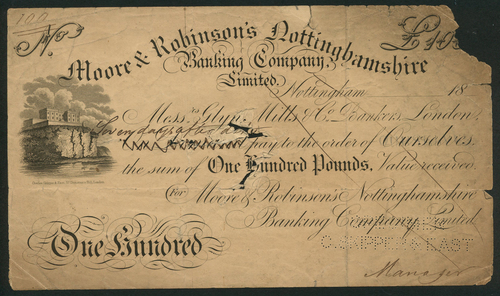 100
No
£100
Moore & Robinson's Nottinghamshire
Banking Company,
Limited.
Nottingham 18
Mess.rs Glyn, Mills & Co. Bankers, London,
Seven days after date
pay to the order of Ourselves
the sum of One Hundred Pounds. Value received
For Moore & Robinson's Nottinghamshire
Banking Company Limited
One Hundred
Manager